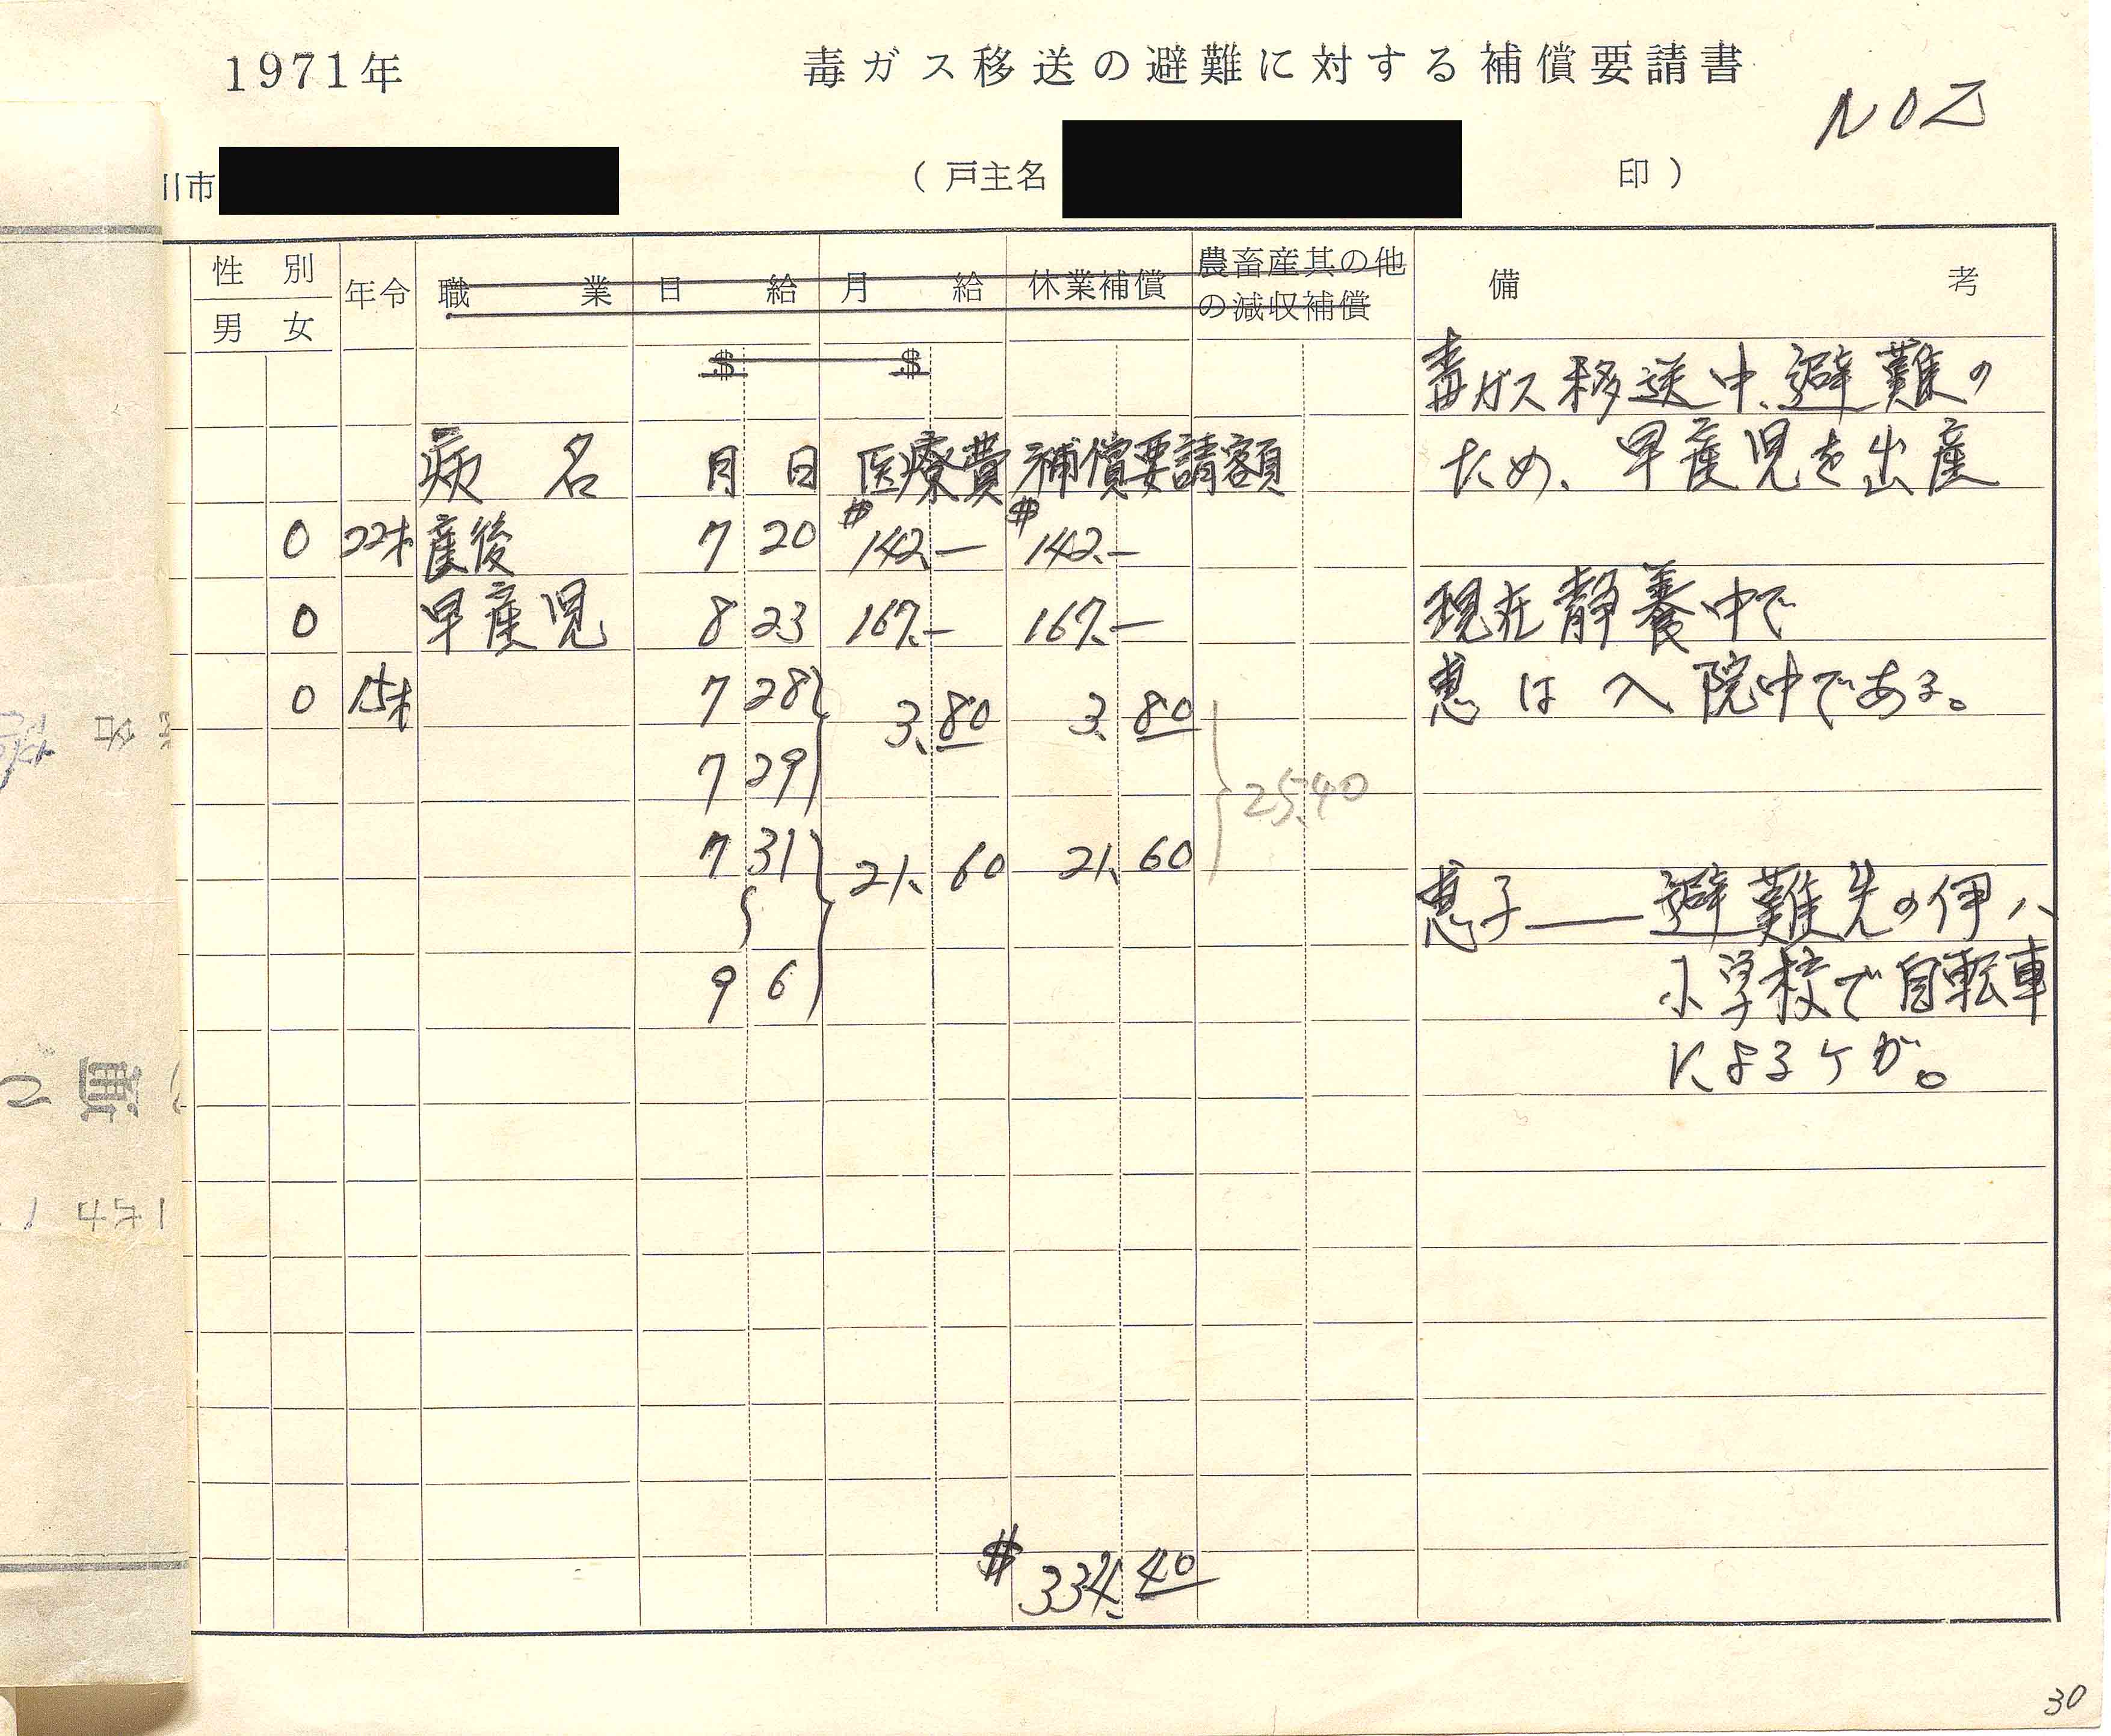 1971年 毒ガス移送の避難に対する補償要請書
NO2
川市 (戸主名 印)
性別 年令 職業 日給 月給 休業補償 農畜産其の他の減収補償 備考
男 女
$ $
毒ガス移送中、避難の
病名 月日 医療費 補償要請額 ため、早産児を出産
0 22才 産後 7 20 $142.— $142.—
0 早産児 8 23 167.— 167.— 現在静養中で
0 15才 7 28 3.80 3.80 恵は入院中である。
7 29 25.40
7 31 21.60 21.60
恵子——避難先の伊ハ
9 6 小学校で自転車
によるケガ。
$334.40
30